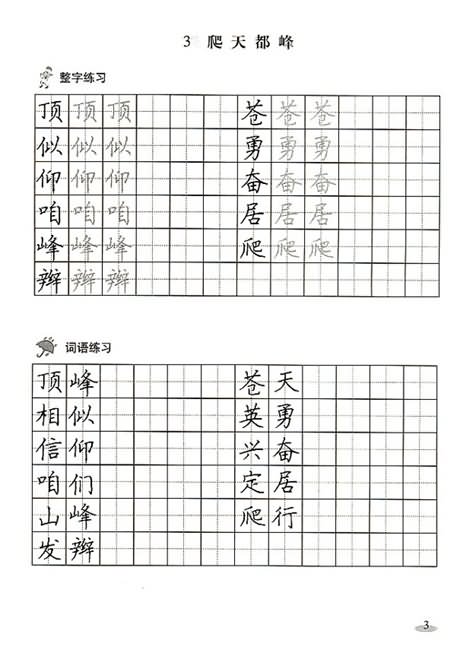 3 爬天都峰
整字练习
顶顶顶 苍苍苍
似似似 勇勇勇
仰仰仰 奋奋奋
咱咱咱 居居居
峰峰峰 爬爬爬
辫辫辫
词语练习
顶峰 苍天
相似 英勇
信仰 兴奋
咱们 定居
山峰 爬行
发辫
3